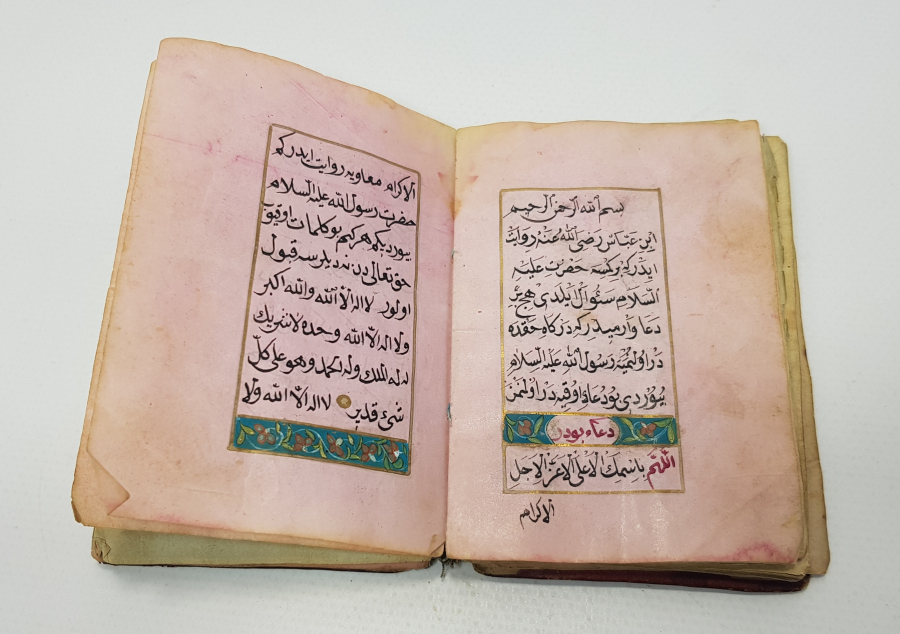 بسم الله الرحمن الرحيم
ابن عباس رضى الله عنه روايت
ايدركه بر كمسه حضرت عليه
السلام سئوال ايلدى هيچ بر
دعا وارميدركه دركاه حقده
در اولنميه رسول الله عليه السلام
بيوردى بو دعا اوقيه در اولنمز
دعاء بودر
اللهم باسمك الاعلى الاعز الاجل
الاكرام
الاكرام معاويه روايت ايدركم
حضرت رسول الله عليه السلام
بيورديكم هركيم بو كلمات اوقيوب
حق تعالى دن نه ديلرسه قبول
اولور لا اله الا الله والله اكبر
ولا اله الا الله وحده لا شريك
له له الملك وله الحمد وهو على كل
شئ قدير لا اله الا الله ولا